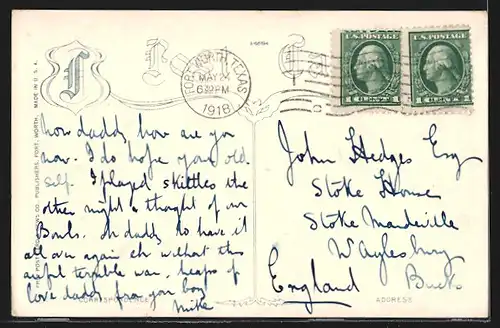 U.S. POSTAGE U.S. POSTAGE
FORT WORTH, TEXAS
MAY 24
6 30 PM
1918
MADE IN U.S.A.
PUBLISHERS, FORT WORTH.
how daddy how are you
now. I do hope your old
self. I played skittles the
other night & thought of our
Bowls. Oh daddy to have it
all over again eh without this
awful terrible war. heaps of
love daddy from your boy
Mike
CORRESPONDENCE
John Hedges Esq
Stoke House
Stoke Mandeville
Waylesbury
Bucks
England
ADDRESS